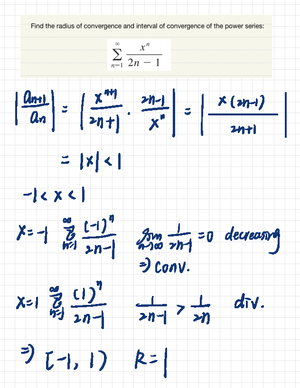 Find the radius of convergence and interval of convergence of the power series:
∞ Σ n=1 x^n / (2n − 1)
|a_{n+1} / a_n| = |x^{n+1} / (2n+1) · (2n-1) / x^n| = |x(2n-1) / (2n+1)|
= |x| < 1
-1 < x < 1
x=-1 ∞ Σ n=1 (-1)^n / (2n-1) lim n→∞ 1 / (2n-1) = 0 decreasing
⇒ conv.
x=1 ∞ Σ n=1 (1)^n / (2n-1) 1 / (2n-1) > 1 / 2n div.
⇒ [-1, 1) R=1